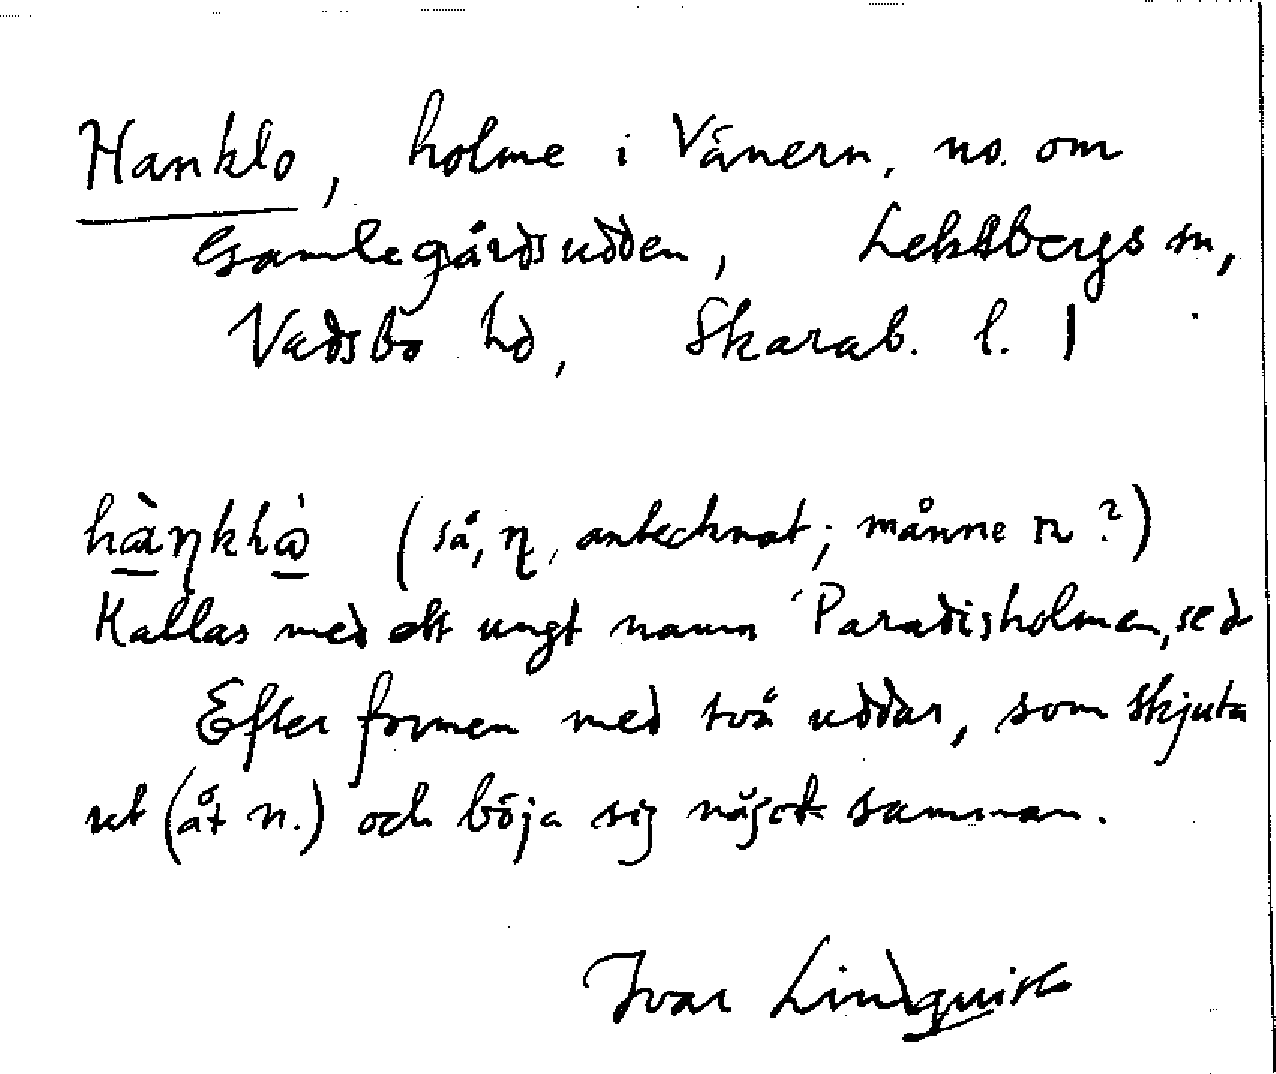 Hanklo, holme i Vänern, no. om
Gamlegårdsudden, Leksbergs sn,
Vadsbo hd, Skarab. l.
hàŋkḷò (så, ŋ, antecknat; månne n?)
Kallas med ett ungt namn Paradisholmen, se d
Efter formen med två uddar, som skjuta
ut (åt n.) och böja sig något samman.
Ivar Lindquist